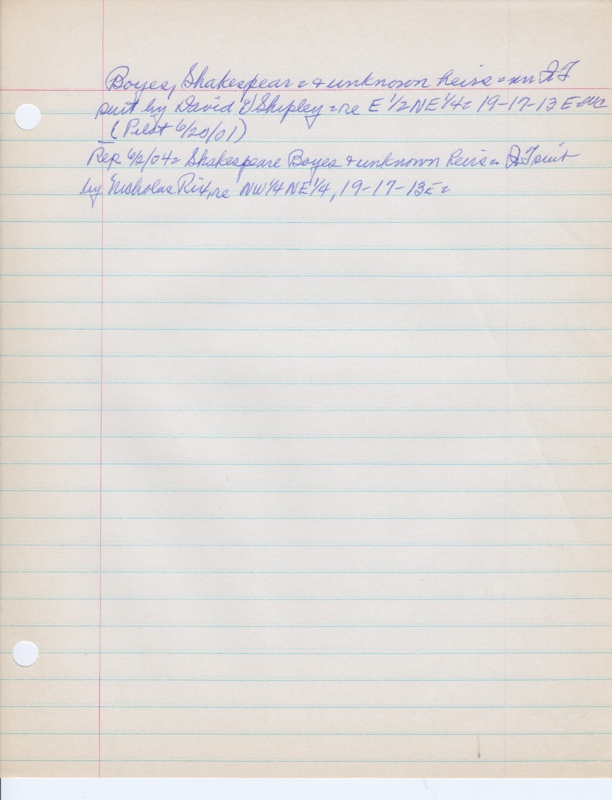 Boyes, Shakespear = & unknown heirs = in QT
suit by David V Shipley = re E 1/2 NE 1/4 = 19-17-13 E =
(Pilot 6/20/01)
Rep 6/2/04 = Shakespeare Boyes & unknown heirs = QT suit
by Nicholas Rix, re NW 1/4 NE 1/4, 19-17-13E =